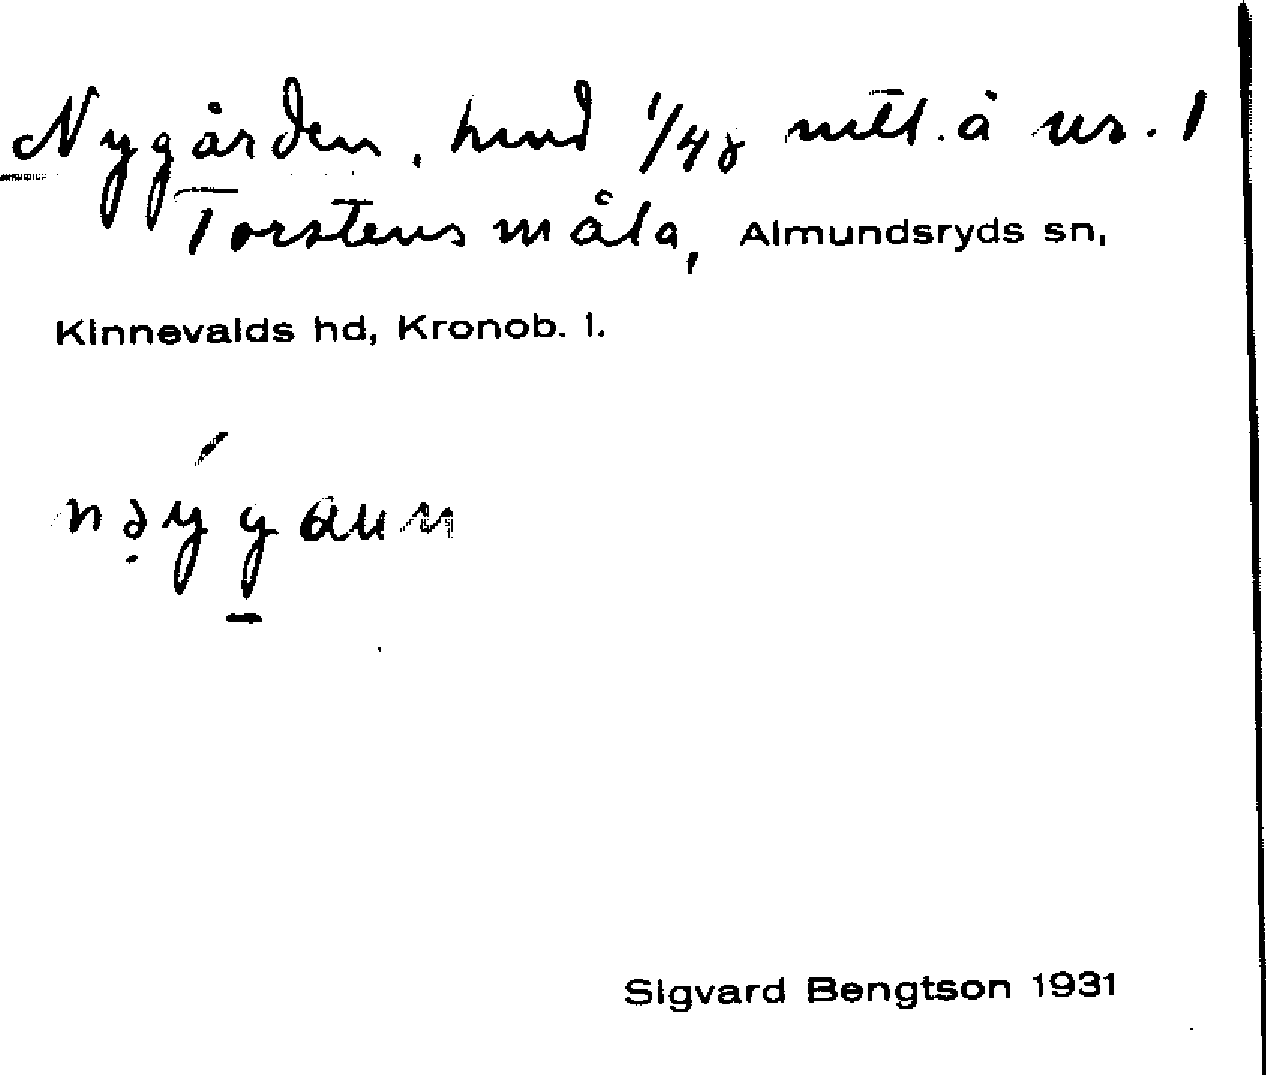 Nygården, hmd 1/48 mtl. å nr. 1
Torstensmåla, Almundsryds sn,
Kinnevalds hd, Kronob. l.
Sigvard Bengtson 1931